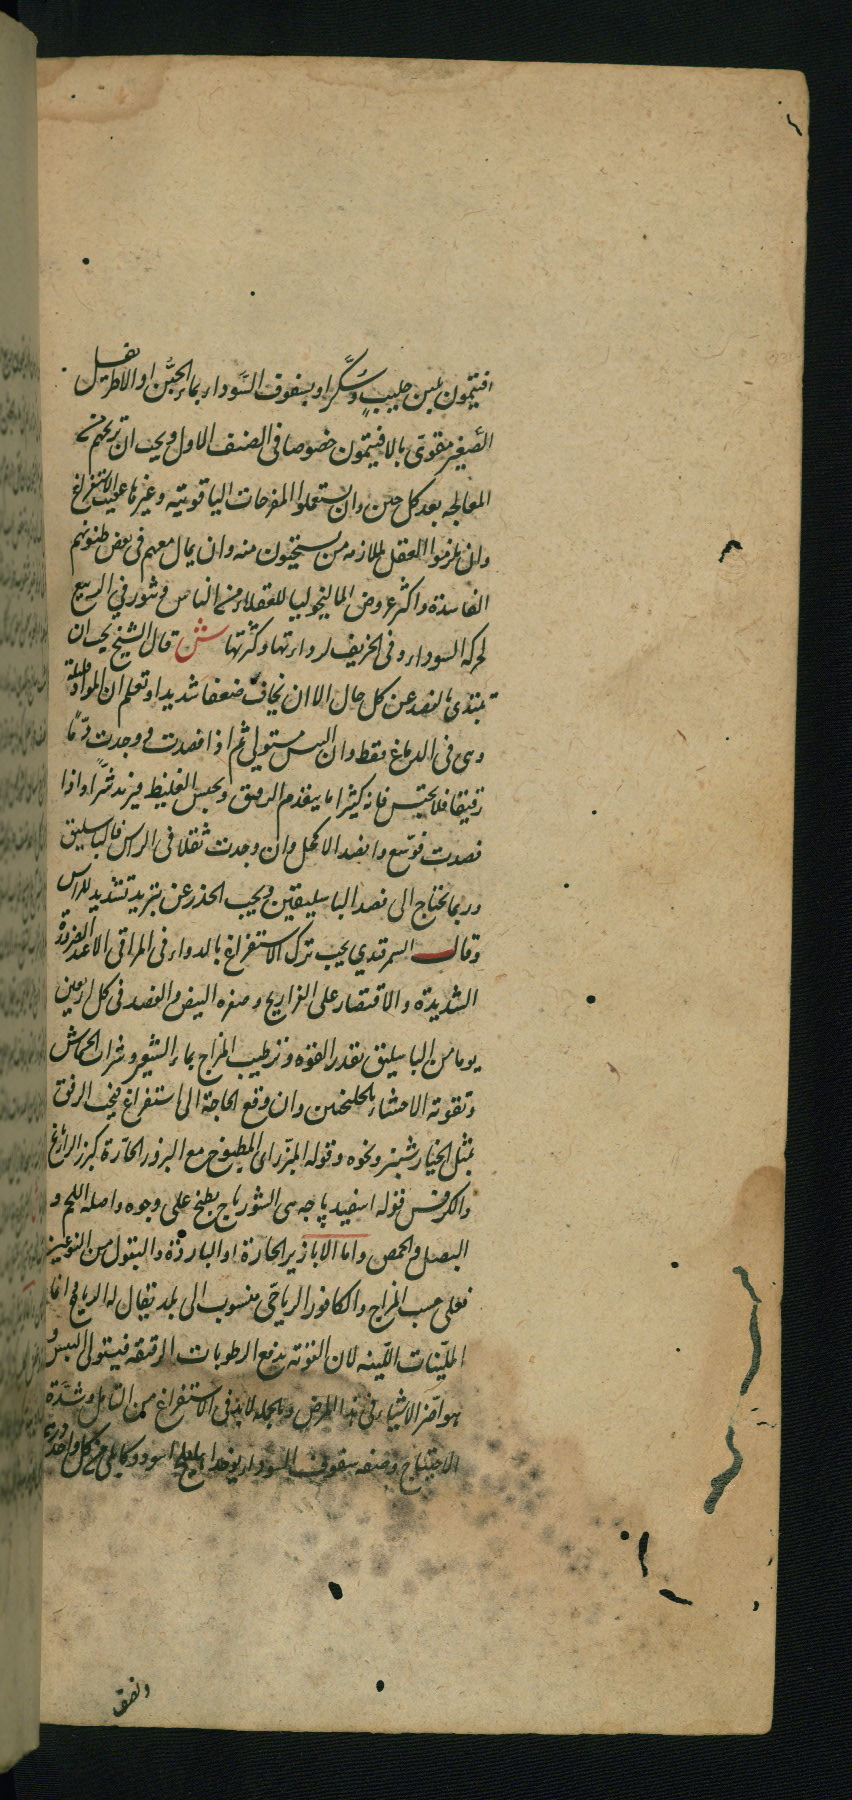 افتيمون بلبن حليب وسكر او بسفوف السوداء بماء الجبن او الاطريفل
الصغير مقوى بالافتيمون خصوصا فى الصنف الاول ويجب ان تريحهم من
المعالجه بعد كل حين وان يستعملوا المفرحات الياقوتيه وغيرها عقيب الاستفراغ
وان يلزموا العقل لملازمه من يستحيون منه وان يمال معهم فى بعض ظنونهم
الفاسدة واكثر عروض الماليخوليا للعقلاء من الناس وتثور في الربيع
لحركه السوداء وفى الخريف لرداءتها وكثرتها ش قال الشيخ يجب ان
تبتدئ بالفصد عن كل حال الا ان تخاف ضعفا شديدا او تعلم ان المواد قليلة
وهى فى الدماغ فقط وان اليبس مستولى ثم اذا فصدت ووجدت دما
رقيقا فلا تحتبس فانه كثيرا ما يتقدم الرقيق ويحبس الغليظ فيزيد شرا واذا
فصدت فوسع وافصد الاكحل وان وجدت ثقلا فى الراس فالباسليق
وربما يحتاج الى فصد الباسليقين ويجب الحذر عن تبريد شديد للراس
وقال السمرقندي يجب ترك الاستفراغ بالدواء فى المراقى الا عند الضرورة
الشديدة والاقتصار على الفراريج وصفره البيض والفصد فى كل اربعين
يوما من الباسليق بقدر القوه وترطيب المزاج بماء الشعير وشراب الخشخاش
وتقويه الاحشاء بالجلنجبين وان وقع الحاجة الى استفراغ فيجب الرفق
بمثل الخيار شنبر ونحوه وقوله المبزر اى المطبوخ مع البزور الحارة كبزر الرازيانج
والكرفس قوله اسفيد پاجه هى الشورباج يطبخ على وجوه واصله اللحم و
البصل والحمص واما الابازير الحارة او الباردة والبقول من النوعين
فعلى حسب المزاج والكافور الرياحى منسوب الى بلد يقال له الرياح انما
الملينات اللينه لان القويه يدفع الرطوبات الرقيقه فيستولى اليبس و
هو اضر الاشياء فى هذا المرض وبالجمله لابد فى الاستفراغ من التامل وشدة
الاحتياج وصفه سفوف السوداء يوخذ اهليلج اسود وكابلى من كل واحد درهم
ونصف